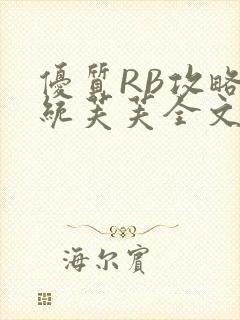 優質RB攻略
統芙芙全文
海尔賓